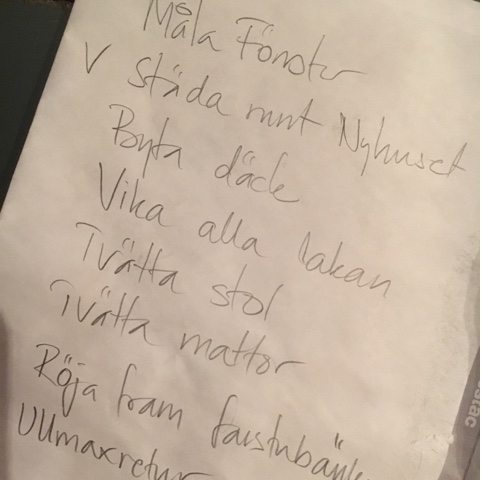 Måla Fönster
V Städa runt Nyhuset
Byta däck
Vika alla lakan
Tvätta stol
Tvätta mattor
Röja fram
Ullmaxretur